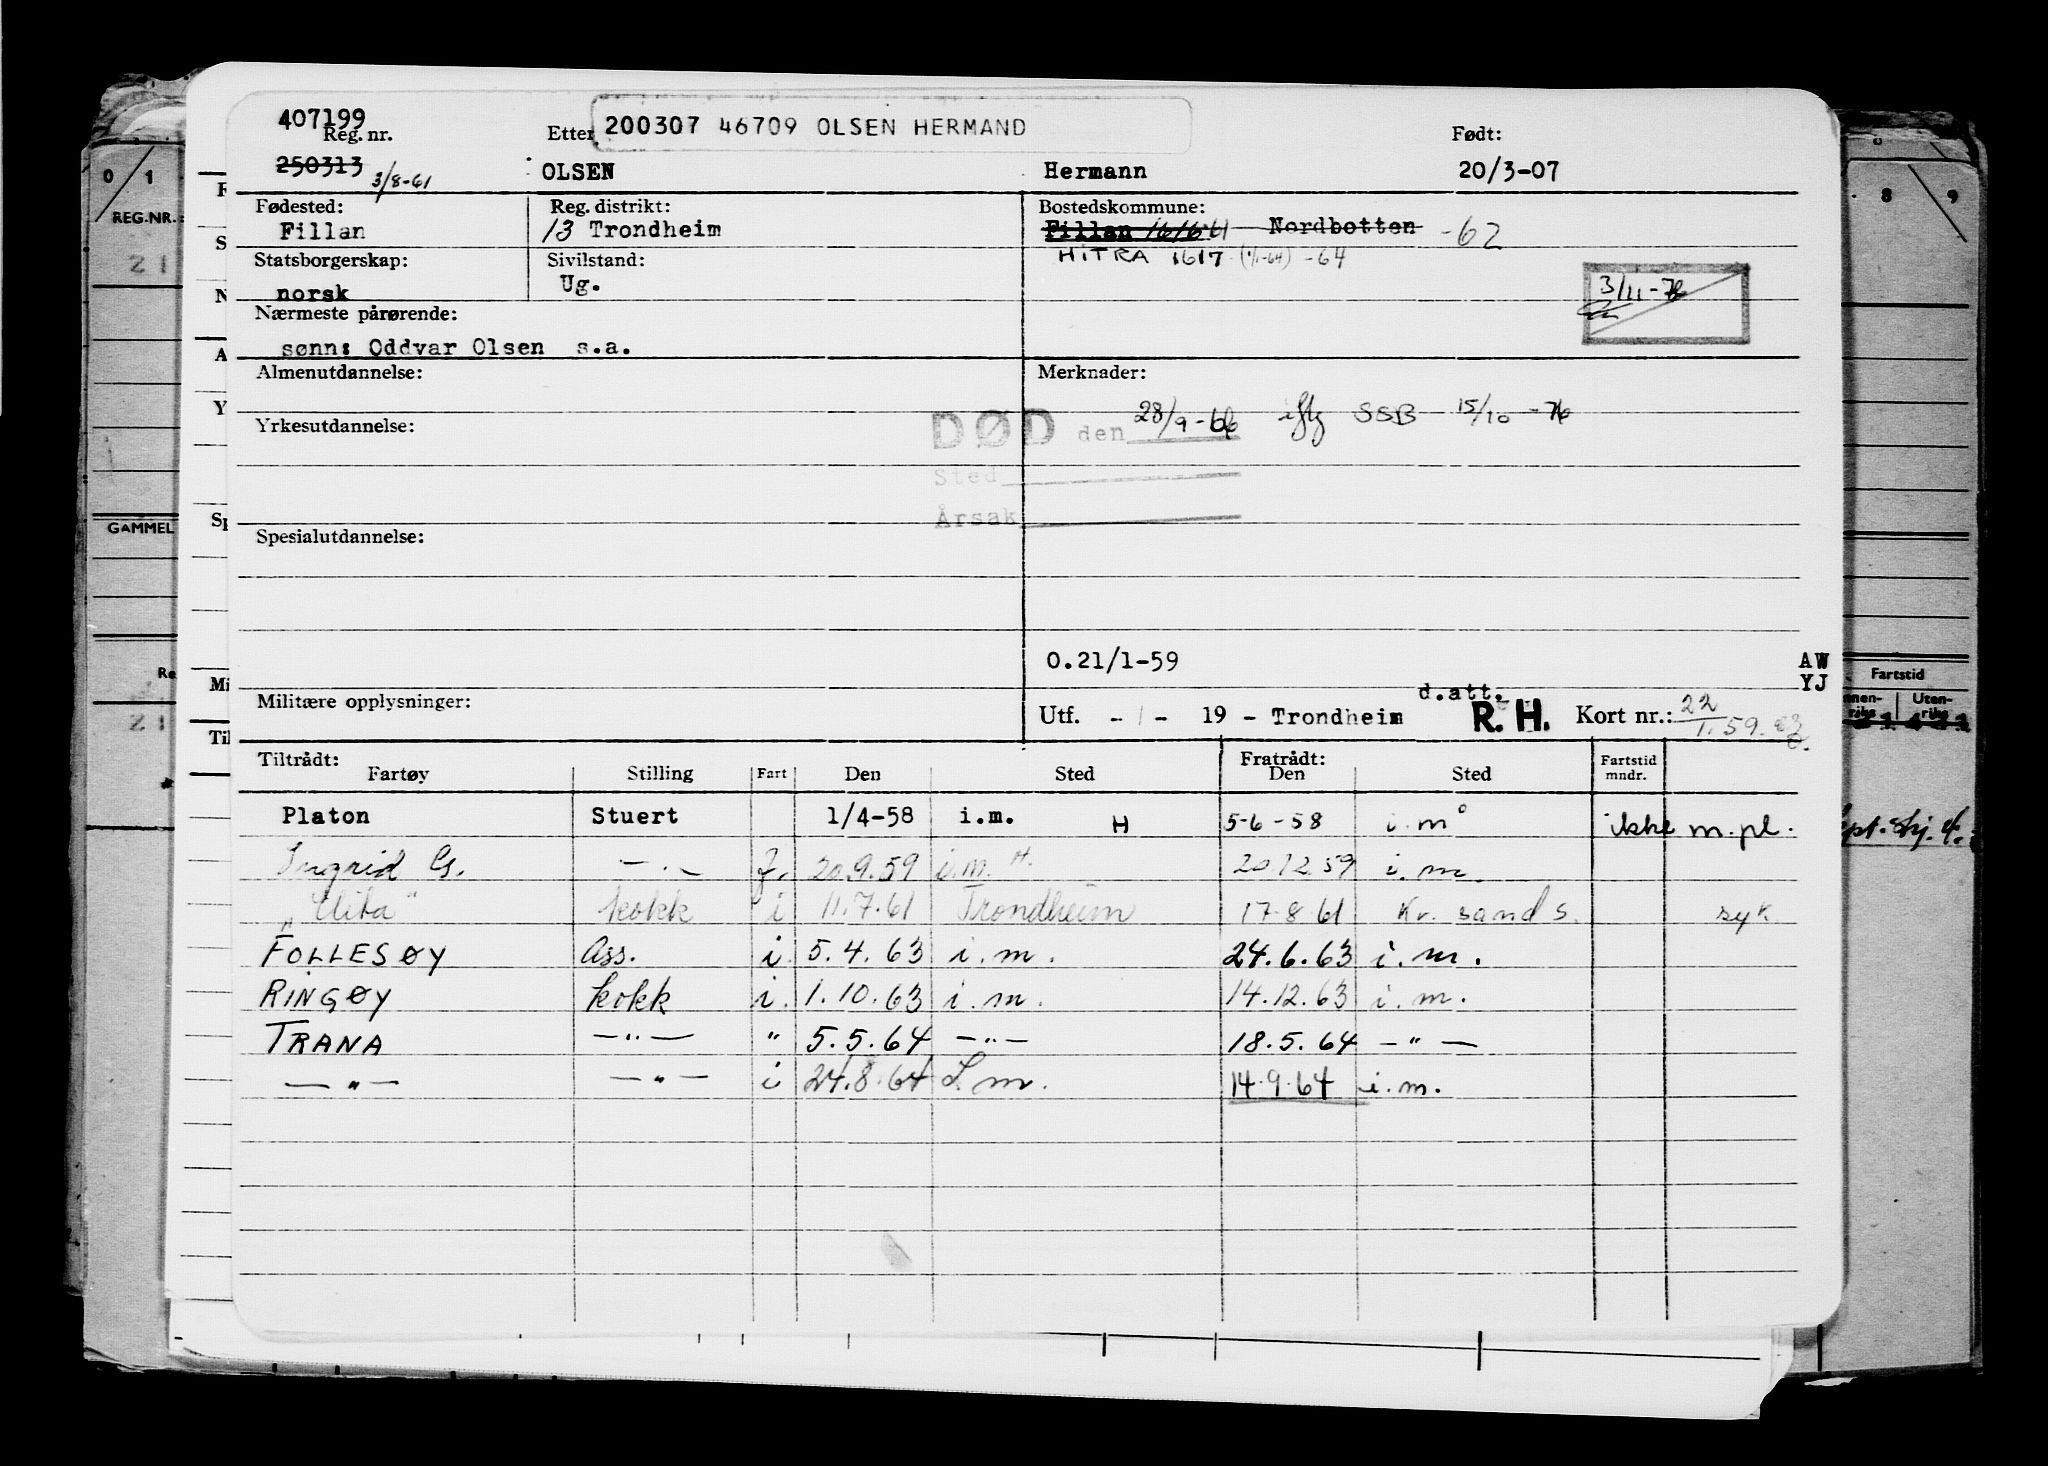 407199
Reg. nr.
Etter
200307 46709 OLSEN HERMAND
Født:
250313 3/8-61
OLSEN
Hermann
20/3-07
Fødested:
Reg. distrikt:
Bostedskommune:
Fillan
13 Trondheim
Fillan Nordbotten -62
HITRA 1617 (1/1-64) -64
Statsborgerskap:
Sivilstand:
norsk
Ug.
3/11-76
Nærmeste pårørende:
sønn: Oddvar Olsen s.a.
Almenutdannelse:
Merknader:
DØD den 28/9-66 iflg SSB 15/10-76
Yrkesutdannelse:
Sted
Årsak
Spesialutdannelse:
0.21/1-59
AW
YJ
Militære opplysninger:
d.att.
Utf. - / - 19 - Trondheim R.H. Kort nr.: 22
1.59.
Tiltrådt:
Fratrådt:
Fartøy Stilling Fart Den Sted Den Sted Fartstid mndr.
Platon Stuert 1/4-58 i.m. H 5-6-58 i.m. ikke m.pl.
Ingrid G. —.— f. 20.9.59 i.m. H. 20 12 59 i.m.
kokk i 11.7.61 Trondheim 17-8 61 Kr. sand s. syk
FOLLESØY Ass. i. 5.4.63 i.m. 24.6.63 i.m.
RINGØY kokk i. 1.10.63 i.m. 14.12.63 i.m.
TRANA —"— " 5.5.64 —"— 18.5.64 —"—
—"— —"— i 24.8.64 i.m. 14.9.64 i.m.
0/1
REG.NR.
21
GAMMEL
Re
21
8 9
Fartstid
nnen-riks
Uten-riks
R
S
N
A
Y
Sp
Mi
Til